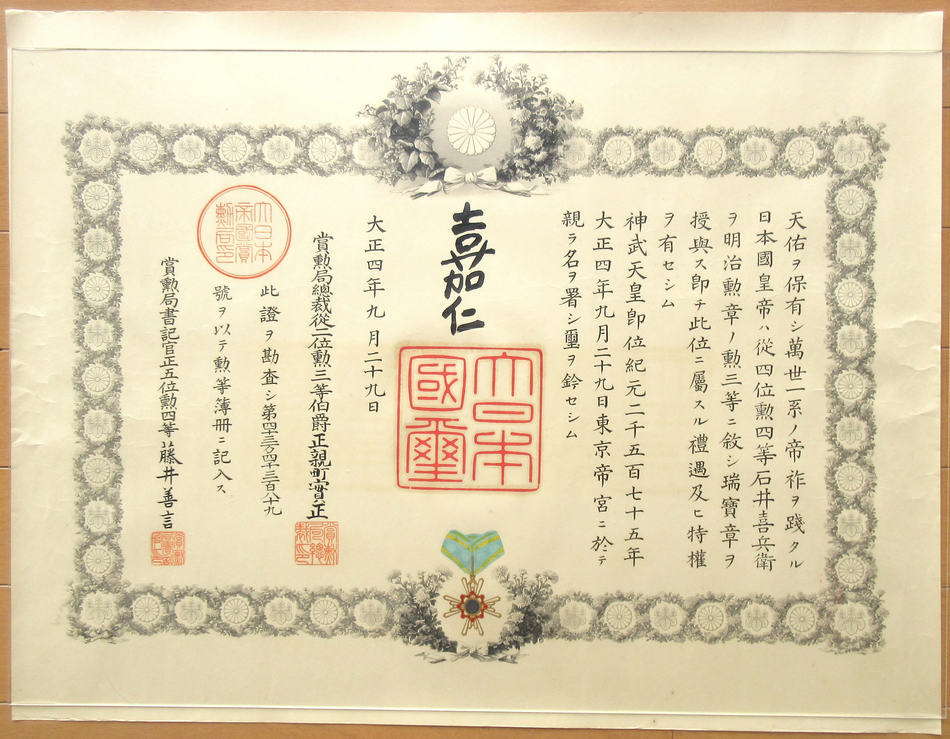 天佑ヲ保有シ萬世一系ノ帝祚ヲ踐タル
日本國皇帝ハ從四位勲四等石井喜兵衛
ヲ明治勲章ノ勲三等ニ敘シ瑞寶章ヲ
授與ス卽チ此位ニ屬スル禮遇及ヒ特權
ヲ有セシム
神武天皇卽位紀元二千五百七十五年
大正四年九月二十九日東京帝宮ニ於テ
親ラ名ヲ署シ璽ヲ鈐セシム
嘉仁
大日本
國璽
大正四年九月二十九日
賞勲局總裁從二位勲三等伯爵正親町實正
此證ヲ勘査シ第四十三万四千三百八十九
號ヲ以テ勲等簿册ニ記入ス
大日本
帝國賞
勲局印
賞勲局書記官正五位勲四等藤井善言